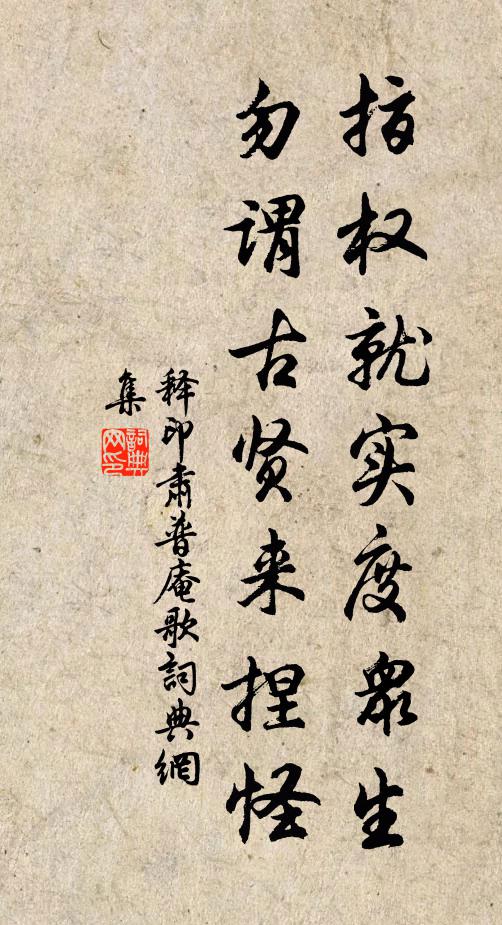 指权就实度众生
勿谓古贤来捏怪
释印肃普庵歌詞典網
集
詞典
网印